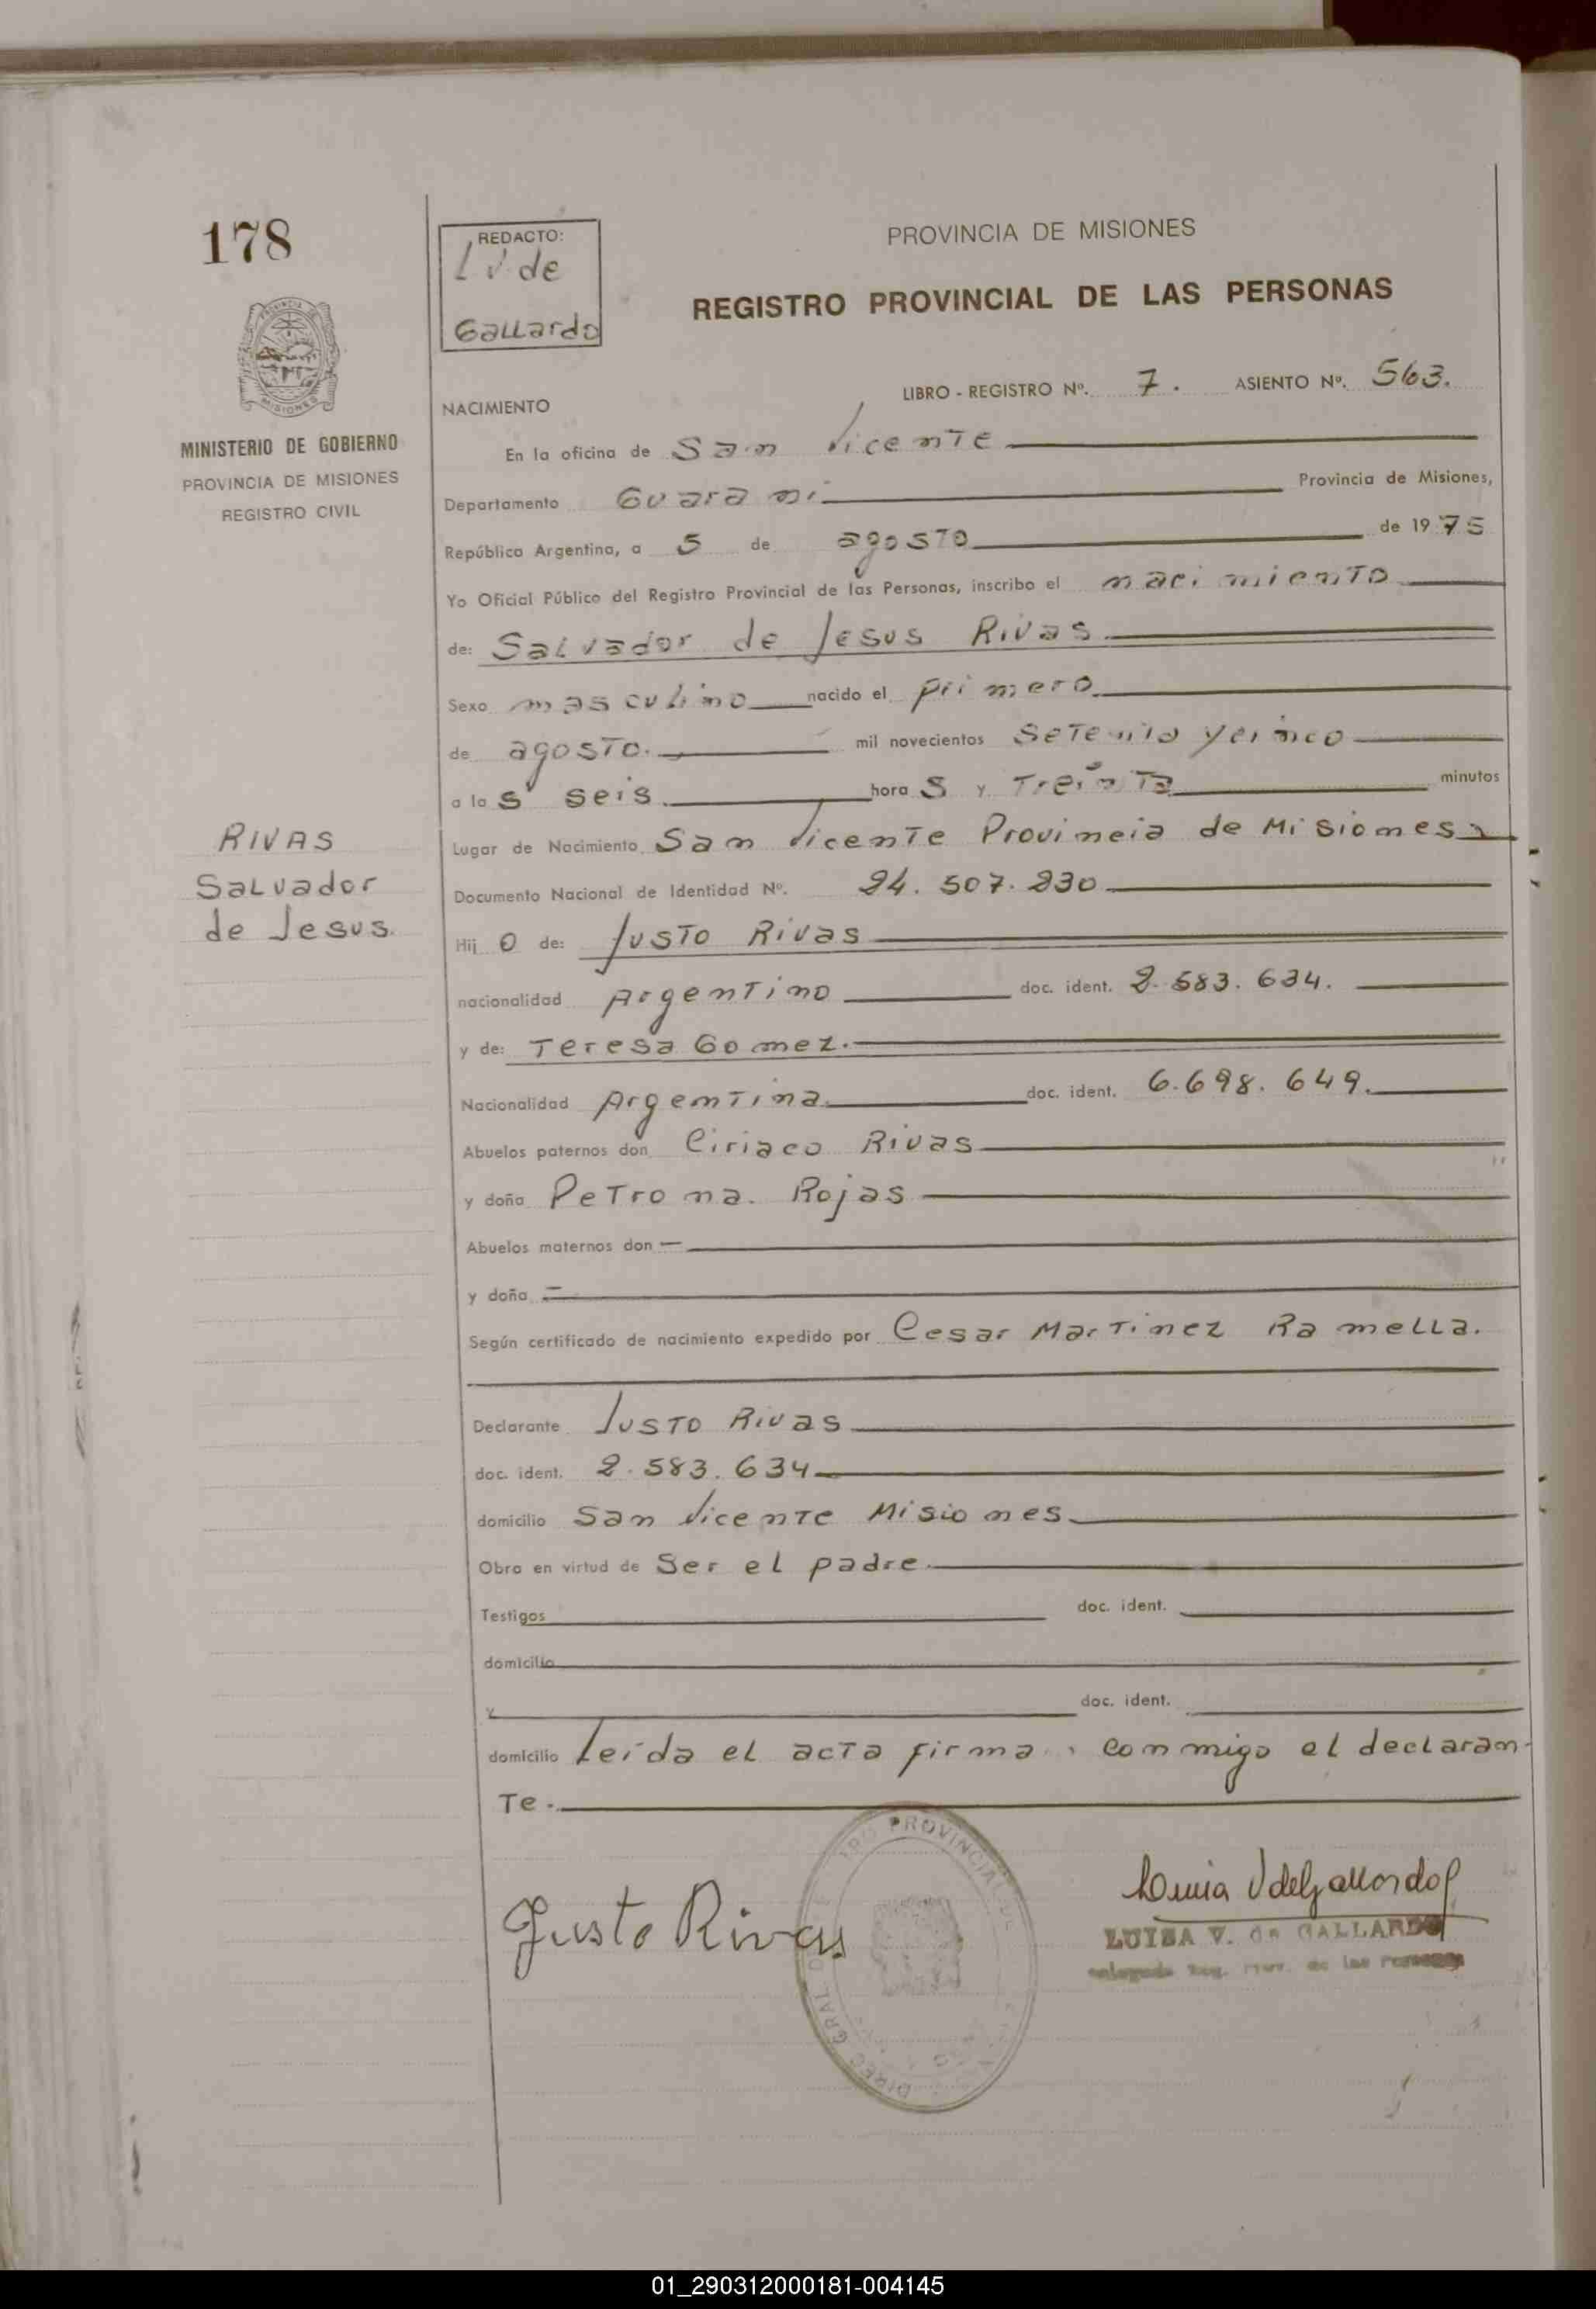 178
REDACTO:
L V. de
Gallardo
PROVINCIA DE MISIONES
REGISTRO PROVINCIAL DE LAS PERSONAS
MINISTERIO DE GOBIERNO
PROVINCIA DE MISIONES
REGISTRO CIVIL
LIBRO - REGISTRO Nº. 7. ASIENTO Nº. 563.
NACIMIENTO
En la oficina de San Vicente
Departamento Guarani Provincia de Misiones,
República Argentina, a 5 de agosto de 1975
Yo Oficial Público del Registro Provincial de las Personas, inscribo el nacimiento
de: Salvador de Jesus Rivas
Sexo masculino nacido el primero
de agosto. mil novecientos setenta y cinco
a las seis horas y treinta minutos
RIVAS
Salvador
de Jesus.
Lugar de Nacimiento San Vicente Provincia de Misiones
Documento Nacional de Identidad Nº. 24.507.230
Hijo de: Justo Rivas
nacionalidad Argentino doc. ident. 2.583.634.
y de: Teresa Gomez.
Nacionalidad Argentina doc. ident. 6.698.649.
Abuelos paternos don Ciriaco Rivas
y doña Petrona. Rojas
Abuelos maternos don —
y doña =
Según certificado de nacimiento expedido por Cesar Martinez Ramella.
Declarante Justo Rivas
doc. ident. 2.583.634
domicilio San Vicente Misiones
Obra en virtud de Ser el padre
Testigos doc. ident.
domicilio
y doc. ident.
domicilio Leída el acta firma conmigo el declaran-
Te.
Justo Rivas
Luisa V de Gallardo
LUISA V. de GALLARDO
Reg. Prov. de las Personas
PROVINCIAL DE
DIREC GRAL
01_290312000181-004145